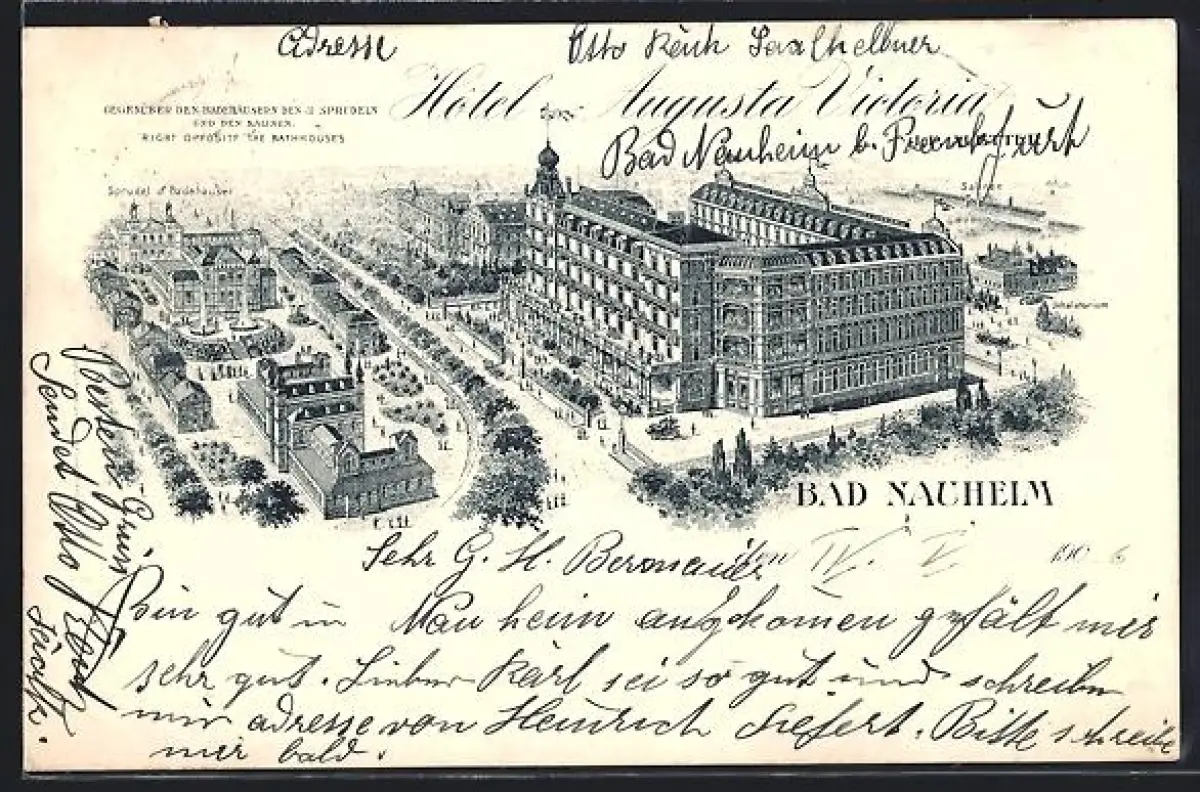 Adresse Otto Saalkellner
Hôtel Augusta Victoria
GEGENÜBER DEN BADEHÄUSERN DEN 3 SPRUDELN
UND DEN SALINEN.
RIGHT OPPOSITE THE BATHHOUSES
Bad Nauheim b. Frankfurt
Sprudel & Badehäuser
Saline
Inhalatorium
BAD NAUHEIM
Sehr G. H. Bermauer den IV. V 1906
Bin gut in Nauheim angekomen gefält mir
sehr gut. Lieber Karl sei so gut und schreibe
mir adresse von Heinrich Siefert. Bitte schreibe
mir bald.
Besten Gruß
Sendet Otto